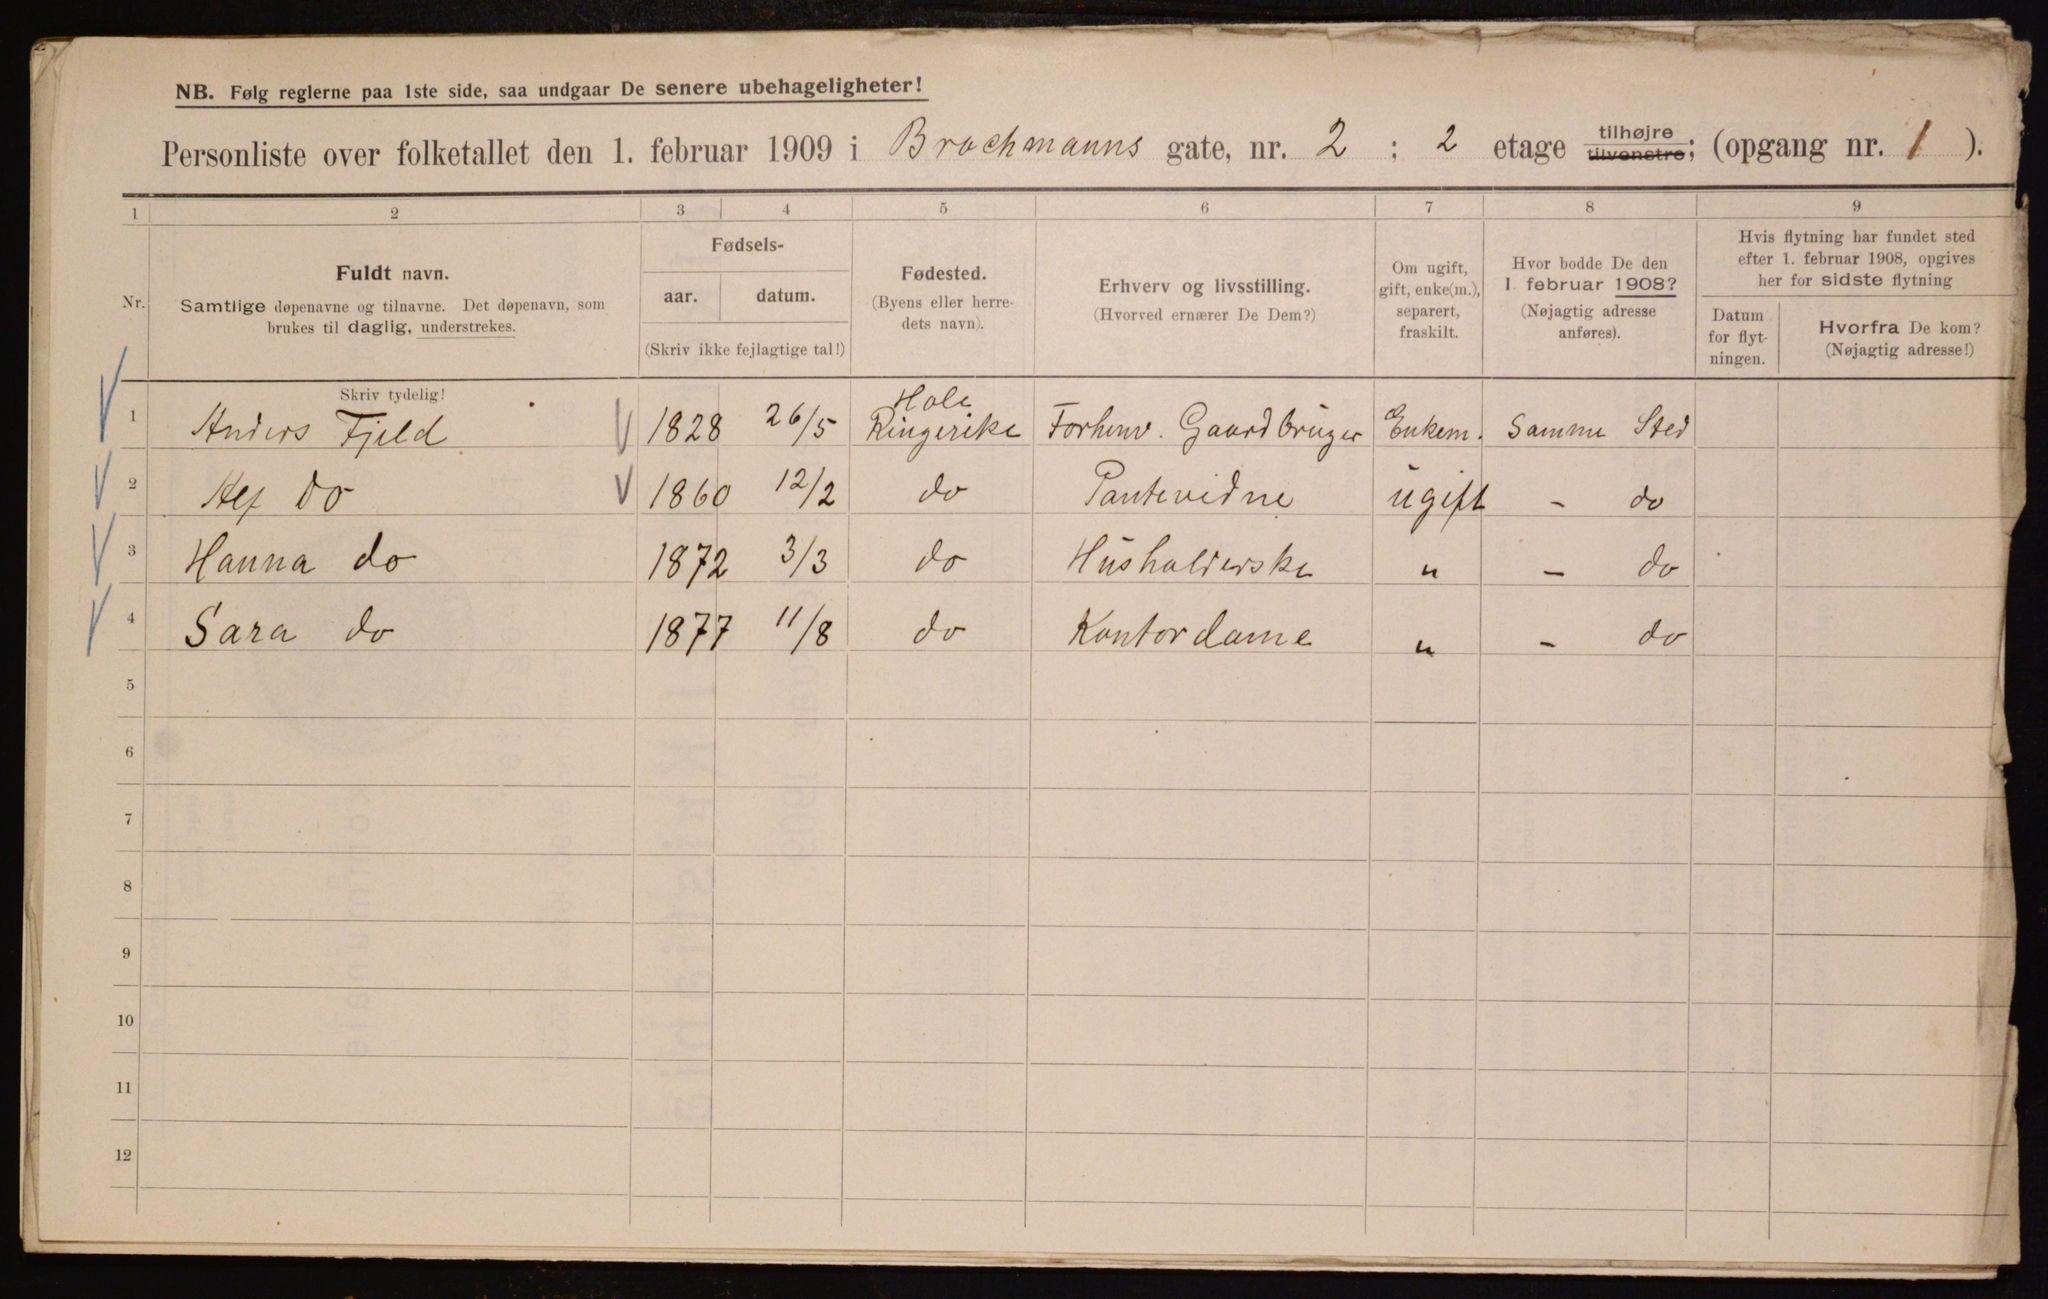 NB. Følg reglerne paa 1ste side, saa undgaar De senere ubehageligheter!
Personliste over folketallet den 1. februar 1909 i Brochmanns gate, nr. 2 ; 2 etage tilhøjre tilvenstre; (opgang nr. 1 ).
1 2 3 4 5 6 7 8 9
Nr.
Fuldt navn.
Samtlige døpenavne og tilnavne. Det døpenavn, som
brukes til daglig, understrekes.
Fødsels-
aar. datum.
(Skriv ikke fejlagtige tal!)
Fødested.
(Byens eller herre-
dets navn).
Erhverv og livsstilling.
(Hvorved ernærer De Dem?)
Om ugift,
gift, enke(m.),
separert,
fraskilt.
Hvor bodde De den
1. februar 1908?
(Nøjagtig adresse
anføres).
Hvis flytning har fundet sted
efter 1. februar 1908, opgives
her for sidste flytning
Datum
for flyt-
ningen.
Hvorfra De kom?
(Nøjagtig adresse!)
Skriv tydelig!
1 Anders Fjeld 1828 26/5 Hole Ringerike Forhenv. Gaardbruger Enkem. Samme Sted
2 Alf do 1860 12/2 do Pantevidne ugift - do
3 Hanna do 1872 3/3 do Husholderske " - do
4 Sara do 1877 11/8 do Kontordame " - do
5
6
7
8
9
10
11
12